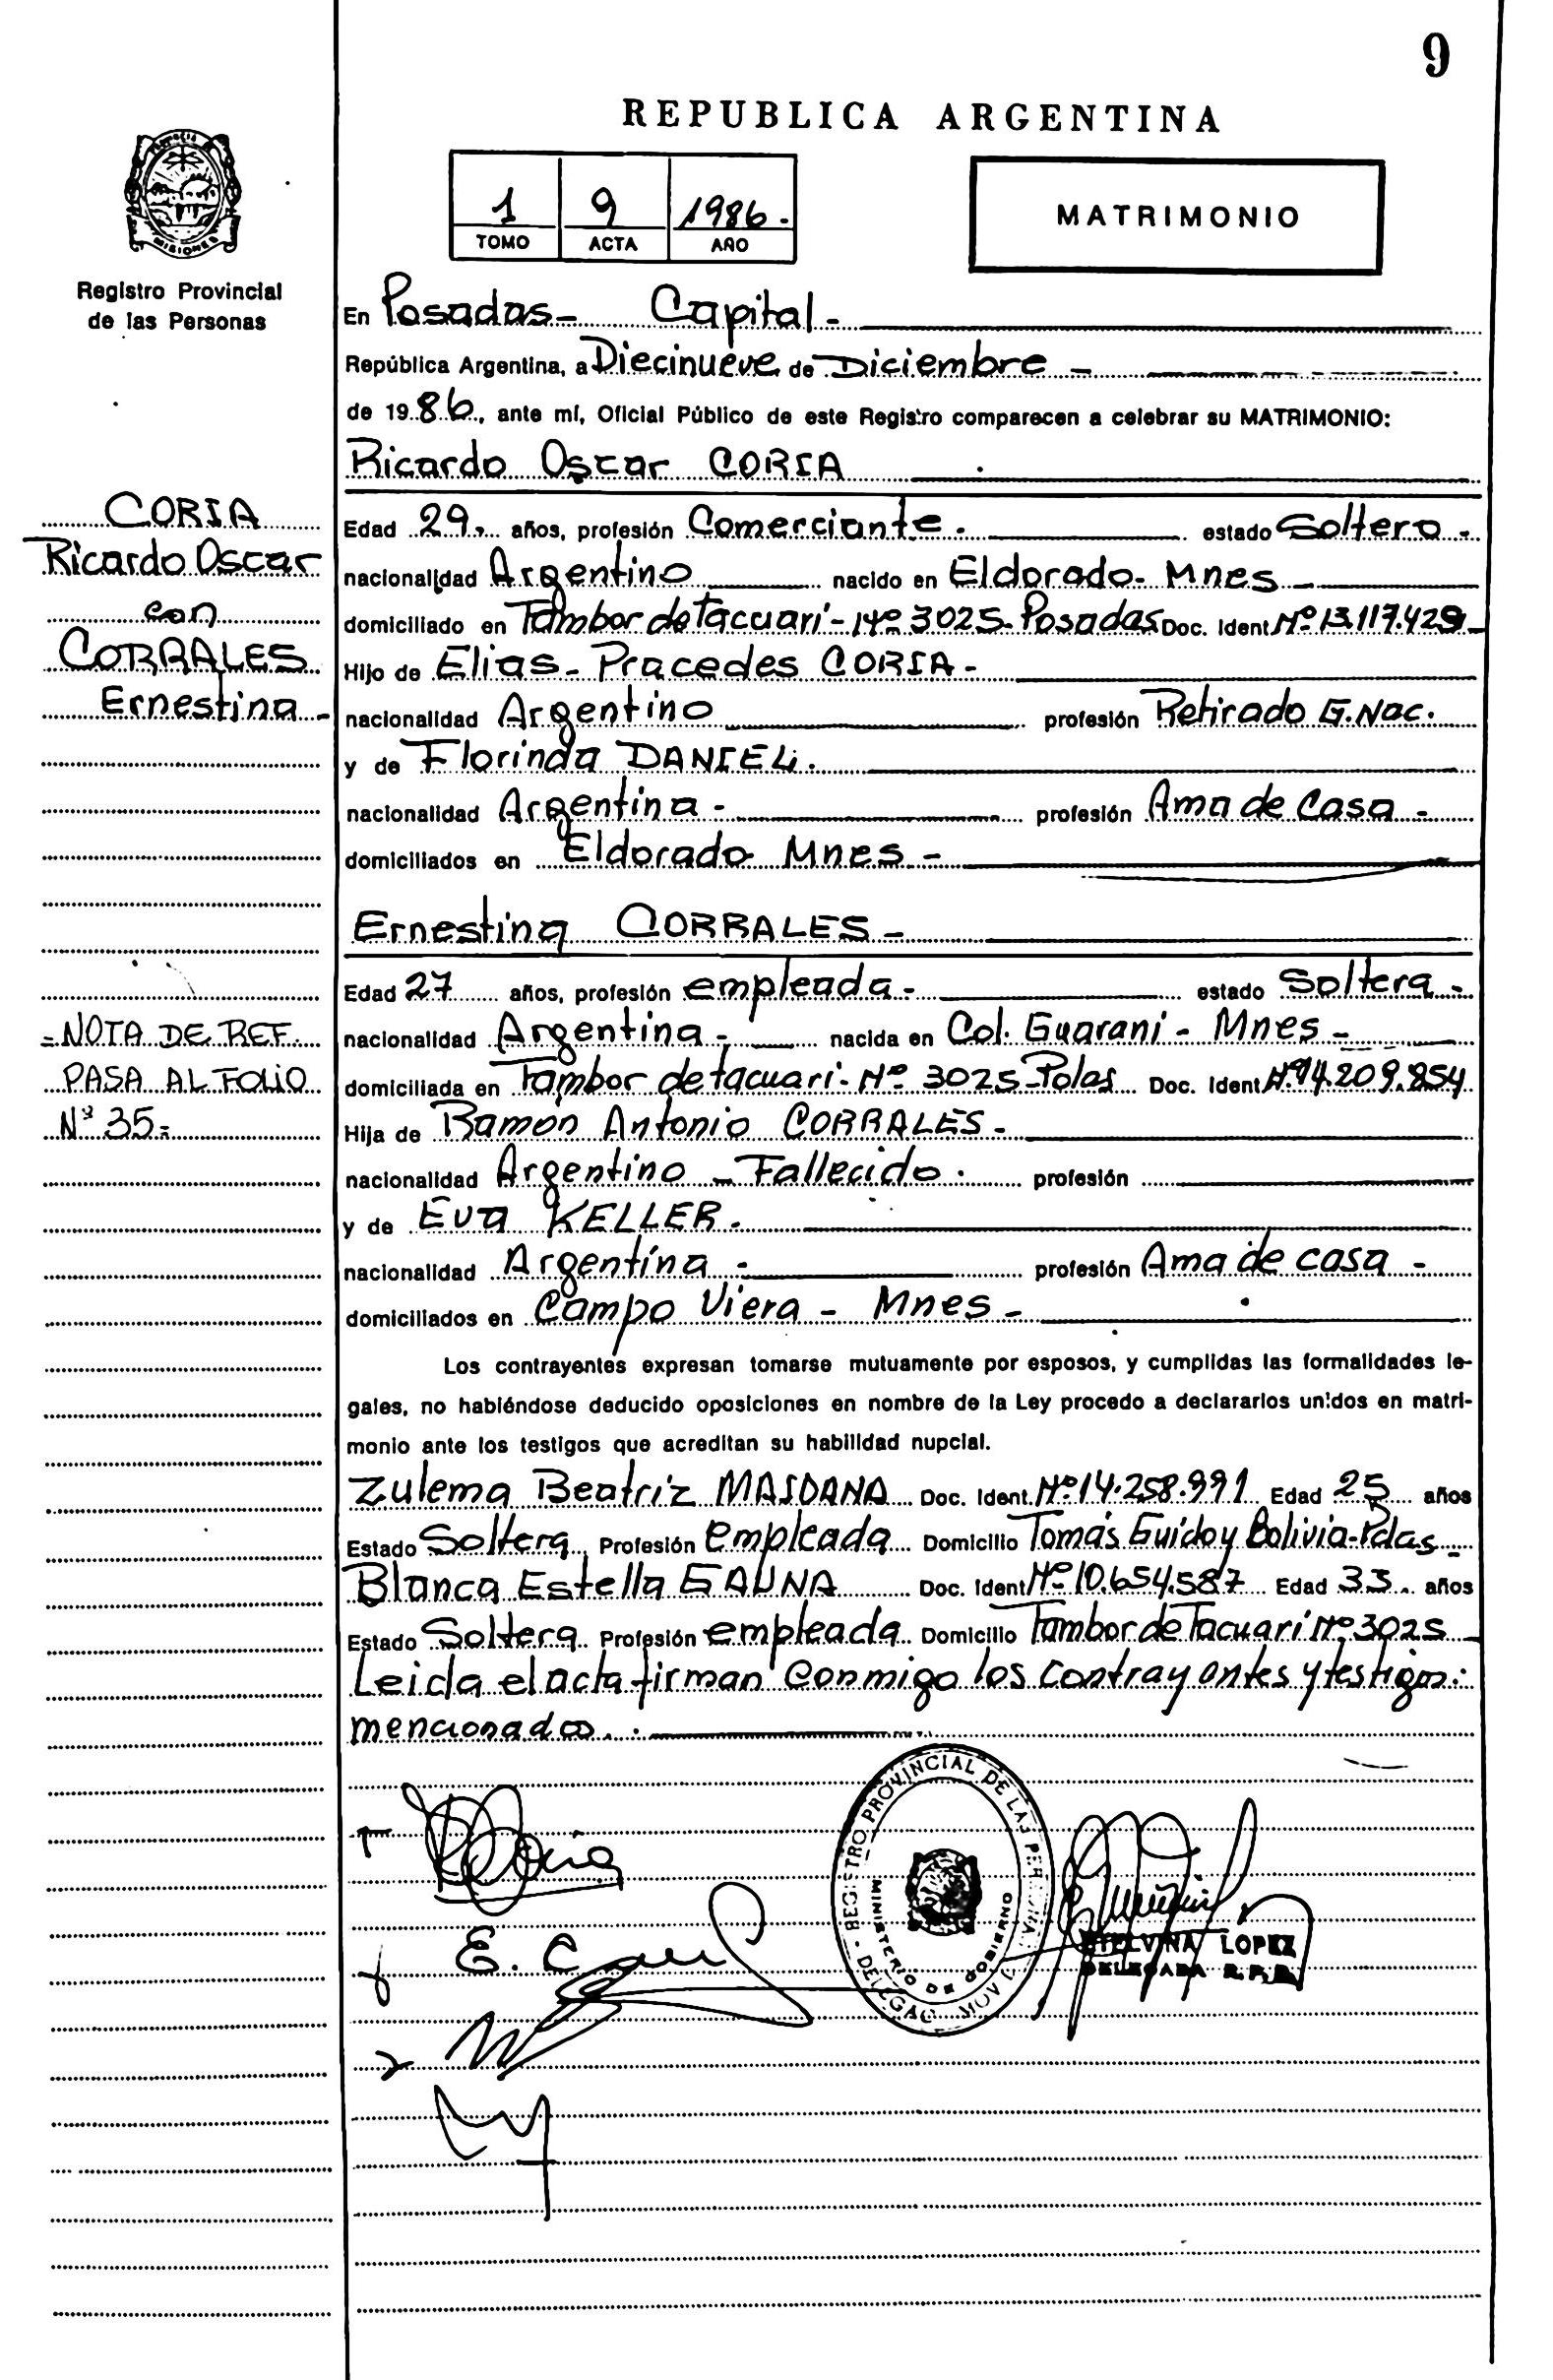 9
REPUBLICA ARGENTINA
1 9 1986.-
TOMO ACTA AÑO
MATRIMONIO
MISIONES
Registro Provincial
de las Personas
En Posadas- Capital-
República Argentina, a Diecinueve de Diciembre -
de 19 86, ante mí, Oficial Público de este Registro comparecen a celebrar su MATRIMONIO:
Ricardo Oscar CORIA
Edad 29. años, profesión Comerciante. estado Soltero -
nacionalidad Argentino nacido en Eldorado- Mnes -
domiciliado en Tambor de Tacuari- Nº 3025- Posadas Doc. Ident. Nº 13.117.429-
Hijo de Elias- Pracedes CORIA-
nacionalidad Argentino profesión Retirado G.Nac.
y de Florinda DANIEL.
nacionalidad Argentina - profesión Ama de Casa -
domiciliados en Eldorado- Mnes -
Ernestina CORRALES -
Edad 27 años, profesión empleada - estado Soltera -
nacionalidad Argentina - nacida en Col. Guarani - Mnes -
domiciliada en Tambor de tacuari- Nº 3025- Doc. Ident. Nº 14.209.854
Hija de Ramón Antonio CORRALES -
nacionalidad Argentino - Fallecido. profesión
y de Eva KELLER.
nacionalidad Argentina - profesión Ama de casa -
domiciliados en Campo Viera - Mnes -
Los contrayentes expresan tomarse mutuamente por esposos, y cumplidas las formalidades le-
gales, no habiéndose deducido oposiciones en nombre de la Ley procedo a declararlos unidos en matri-
monio ante los testigos que acreditan su habilidad nupcial.
Zulema Beatriz MAIDANA Doc. Ident. Nº 14.258.991 Edad 25 años
Estado Soltera Profesión empleada Domicilio Tomás Guido y Bolivia-Pdas-
Blanca Estella GAUNA Doc. Ident. Nº 10.654.587 Edad 33. años
Estado Soltera Profesión empleada Domicilio Tambor de Tacuari Nº 3025
Leida el acta firman conmigo los contrayentes y testigos:
mencionados.
CORIA
Ricardo Oscar
con
CORRALES
Ernestina -
- NOTA DE REF.
PASA AL FOLIO
Nº 35-
E. C
REGISTRO PROVINCIAL DE LAS PER
MINISTERIO DE GOBIERNO
LOPEZ
DELEGADA R.P.P.